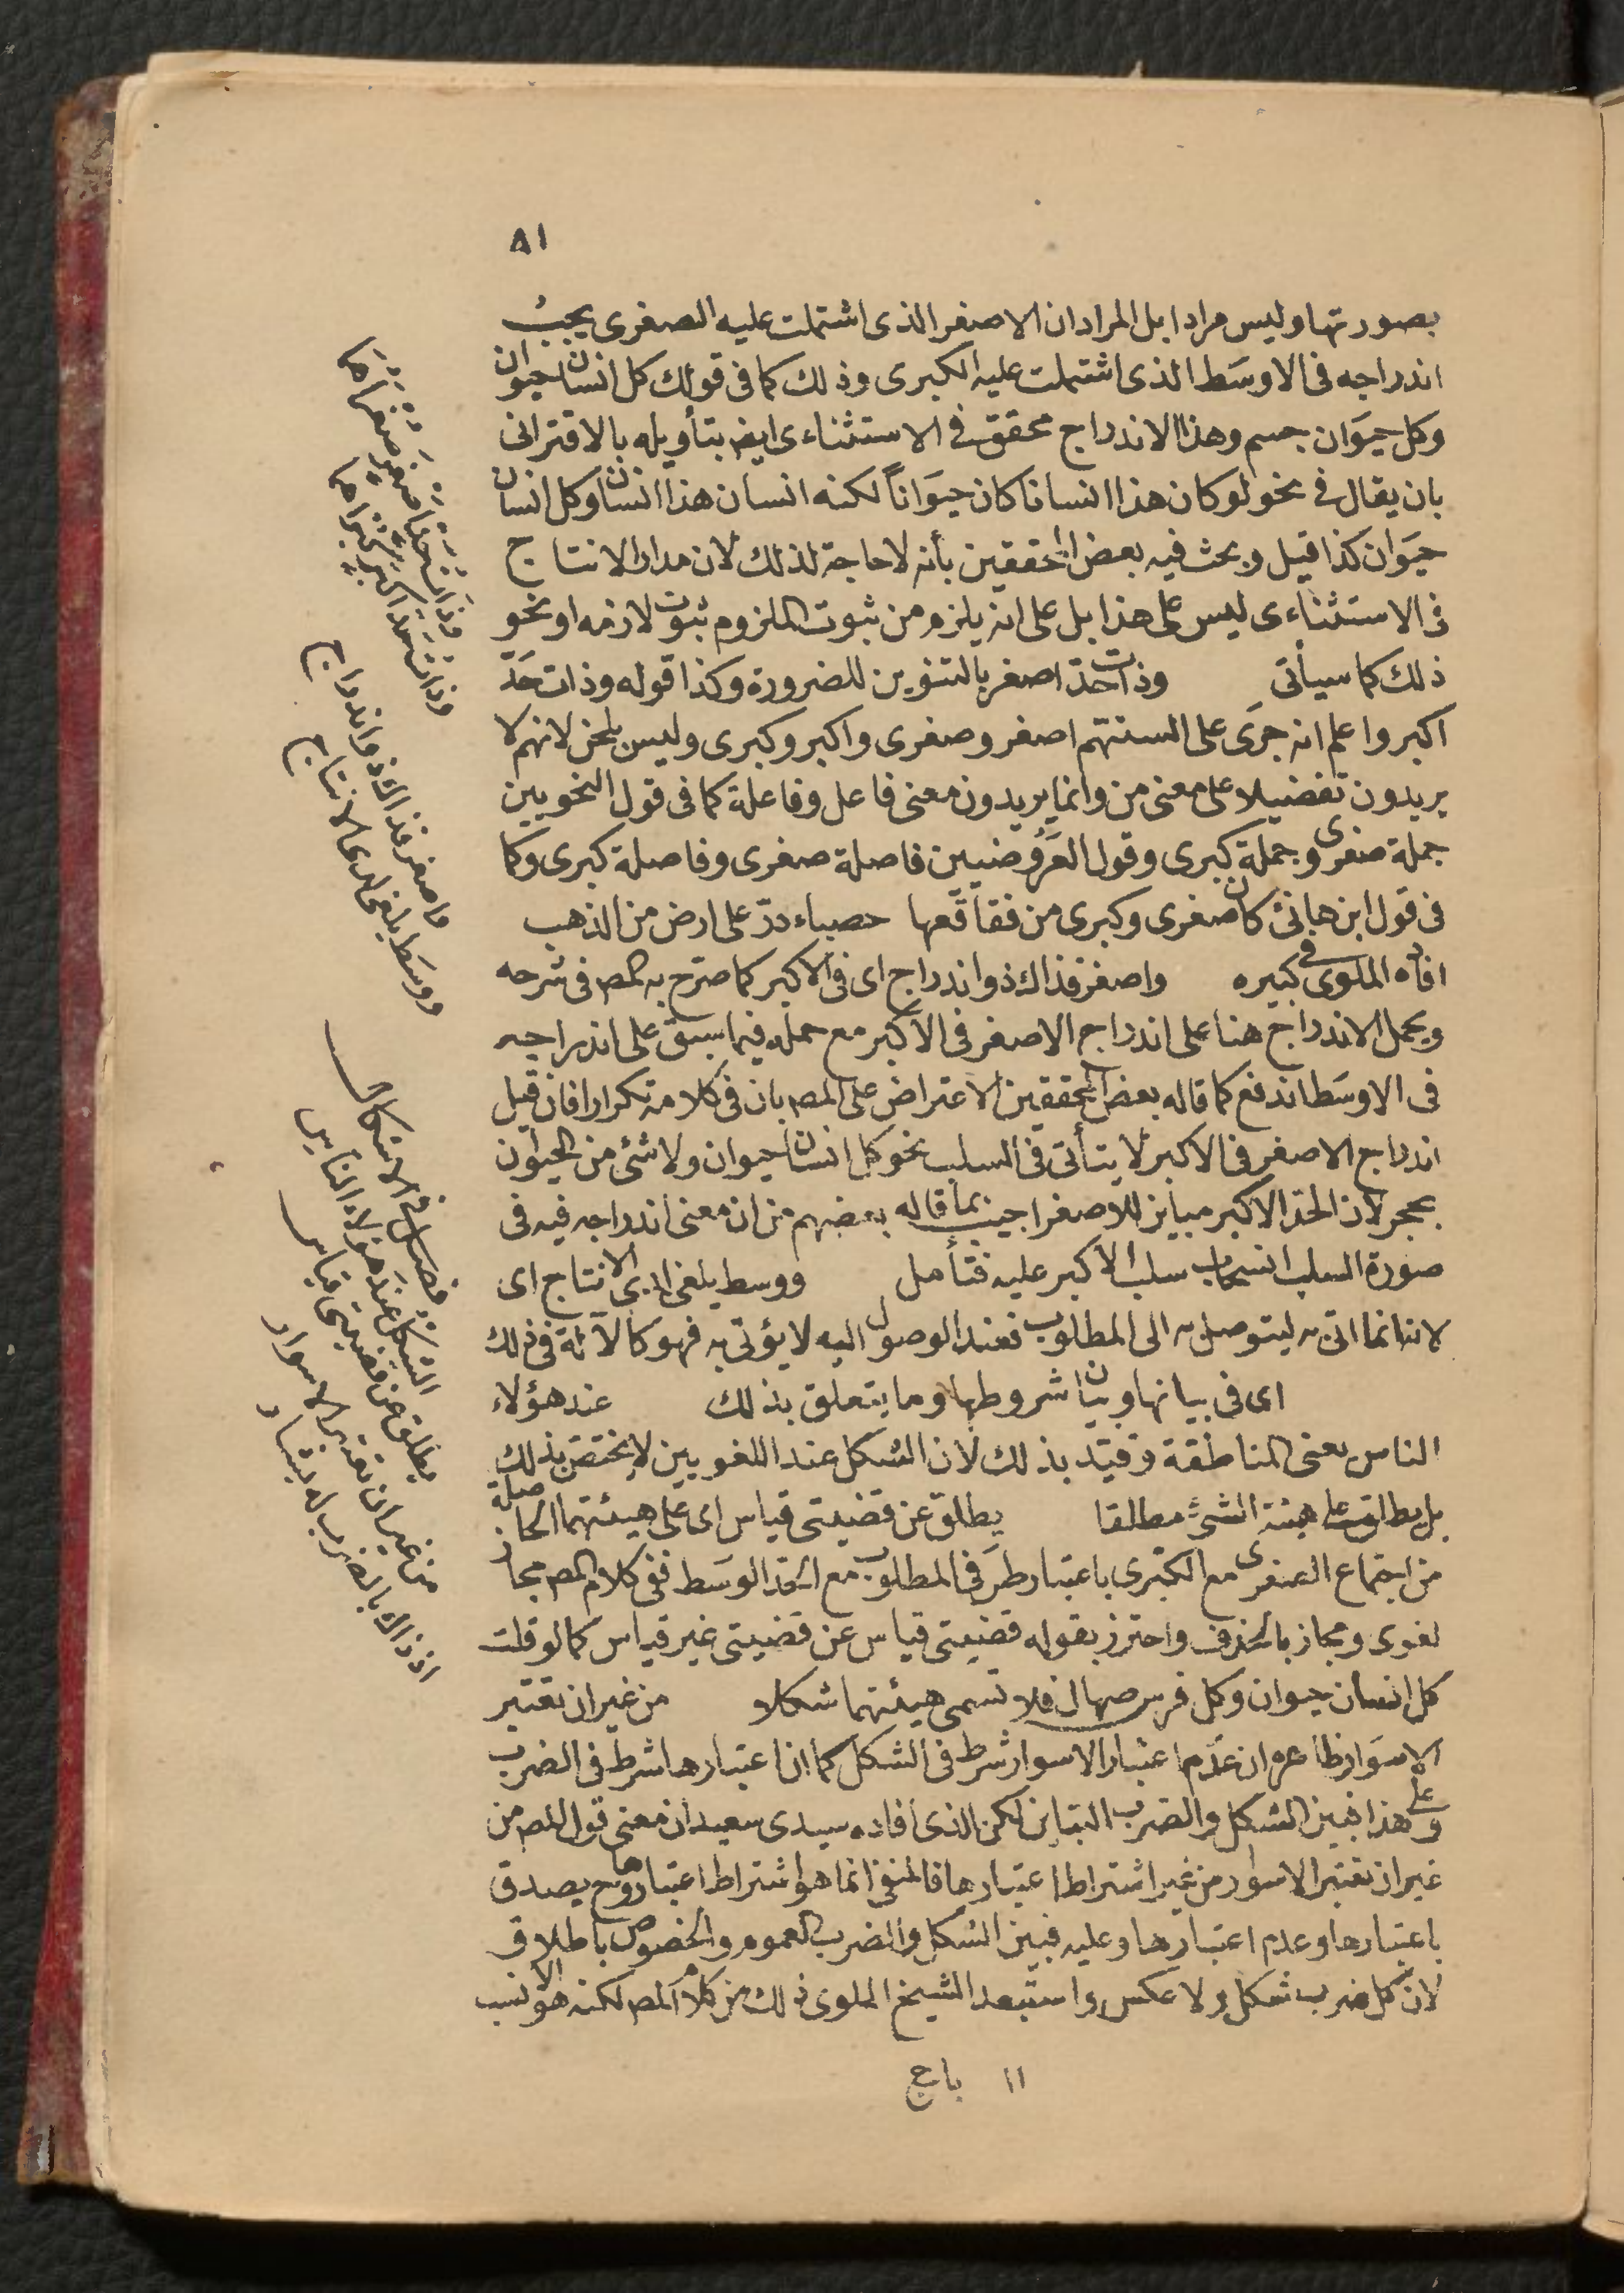 ٨١
بصورتها وليس مرادا بل المراد ان الاصغر الذى اشتملت عليه الصغرى يجب
اندراجه فى الاوسط الذى اشتملت عليه الكبرى وذلك كما فى قولك كل انسان حيوان
وكل حيوان جسم وهذا الاندراج محقق فى الاستثناءى ايضا بتأويله بالاقترانى
بان يقال فى نحو لو كان هذا انسانا كان حيوانا لكنه انسان هذا انسان وكل انسان
حيوان كذا قيل وبحث فيه بعض المحققين بأنه لا حاجة لذلك لان مدار الانتاج
فى الاستثناءى ليس على هذا بل على انه يلزم من ثبوت الملزوم ثبوت لازمه او نحو
ذلك كما سيأتى وذات حد اصغر بالتنوين للضرورة وكذا قوله وذات حد
اكبر واعلم انه جرى على السنتهم اصغر وصغرى واكبر وكبرى وليس بلحن لانهم لا
يريدون تفضيلا على معنى من وانما يريدون معنى فاعل وفاعلة كما فى قول النحويين
جملة صغرى وجملة كبرى وقول العروضيين فاصلة صغرى وفاصلة كبرى وكما
فى قول ابن هانئ كان صغرى وكبرى من فقاقعها حصباء در على ارض من الذهب
افاده الملوى فى كبيره واصغر فذاك ذو اندراج اى فى الاكبر كما صرح به المص فى شرحه
وبحمل الاندراج هنا على اندراج الاصغر فى الاكبر مع حمله فيما سبق على اندراجه
فى الاوسط اندفع كما قاله بعض المحققين الاعتراض على المص بان فى كلامه تكرارا فان قيل
اندراج الاصغر فى الاكبر لا يتأتى فى السلب نحو كل انسان حيوان ولا شئ من الحيوان
بحجر لان الحد الاكبر مباين للاصغر اجيب بما قاله بعضهم من ان معنى اندراجه فيه فى
صورة السلب انسحاب سلب الاكبر عليه فتأمل ووسط يلغى لدى الانتاج اى
لاننا انما اتى به ليتوصل به الى المطلوب فعند الوصول اليه لا يؤتى به فهو كالآلة فى ذلك
اى فى بيانها وبيان شروطها وما يتعلق بذلك عند هؤلاء
الناس يعنى المناطقة وقيد بذلك لان الشكل عند اللغويين لا يختص بذلك
بل يطلق على هيئة الشئ مطلقا يطلق عن قضيتى قياس اى على هيئتهما الحاصلة
من اجتماع الصغرى مع الكبرى باعتبار طرفى المطلوب مع الحد الوسط ففى كلام المص مجاز
لغوى ومجاز بالحذف واحترز بقوله قضيتى قياس عن قضيتى غير قياس كما لو قلت
كل انسان حيوان وكل فرس صهال فلا تسمى هيئتهما شكلا من غير ان تعتبر
الاسوار ظاهره ان عدم اعتبار الاسوار شرط فى الشكل كما ان اعتبارها شرط فى الضرب
وعلى هذا فبين الشكل والضرب التباين لكن الذى افاده سيدى سعيد ان معنى قول المص من
غير ان تعتبر الاسوار من غير اشتراط اعتبارها فالمنفى انما هو اشتراط اعتبارها وح يصدق
باعتبارها وعدم اعتبارها وعليه فبين الشكل والضرب العموم والخصوص باطلاق
لان كل ضرب شكل ولا عكس واستبعد الشيخ الملوى ذلك من كلام المص لكنه هو الانسب
١١ باج
وذات حد اصغر صغراهما
وذات حد اكبر كبراهما
واصغر فذاك ذو اندراج
ووسط يلغى لدى الانتاج
فصل فى الاشكال
الشكل عند هؤلاء الناس
يطلق عن قضيتى قياس
من غير ان تعتبر الاسوار
اذ ذاك بالضرب له يشار